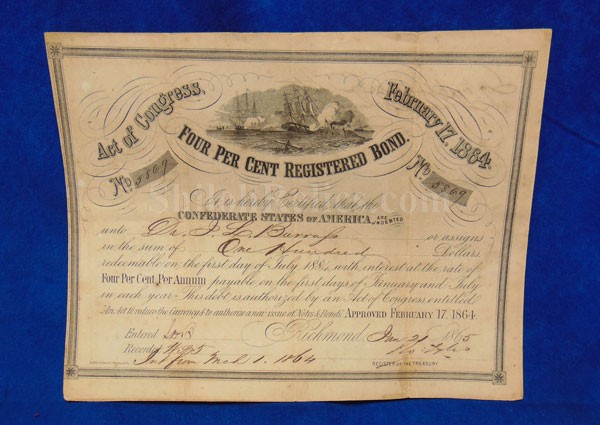 Act of Congress, February 17, 1864.
FOUR PER CENT REGISTERED BOND.
No 5869 No 5869
It is hereby Certified that the
CONFEDERATE STATES OF AMERICA, ARE INDEBTED
unto Dr. J. L. Burruss or assigns
in the sum of One Hundred Dollars
redeemable on the first day of July 188 , with interest at the rate of
Four Per Cent, Per Annum payable on the first days of January and July
in each year. This debt is authorized by an Act of Congress entitled
"An Act to reduce the Currency & to authorize a new issue of Notes & Bonds" APPROVED FEBRUARY 17, 1864.
Entered Richmond, Jan 21 1865
Recorded
Int from Mch 1. 1864 REGISTER OF THE TREASURY